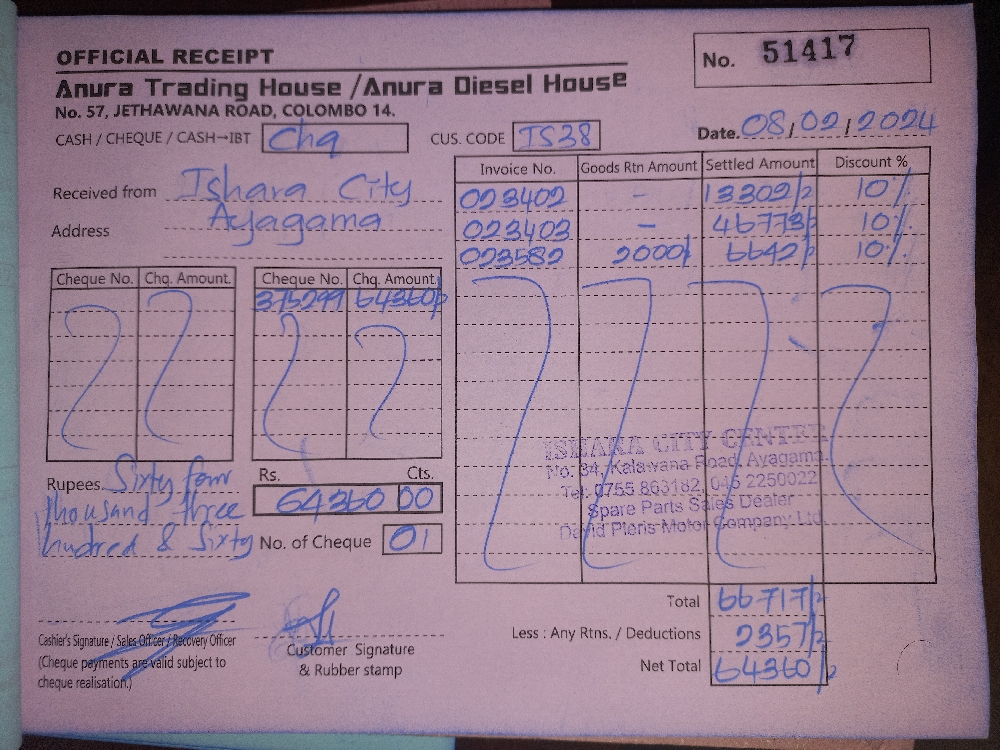 OFFICIAL RECEIPT
No. 51417
Anura Trading House /Anura Diesel House
No. 57, JETHAWANA ROAD, COLOMBO 14.
CASH / CHEQUE / CASH→IBT Chq CUS. CODE IS38 Date. 08/02/2024
Received from Ishara City
Address Ayagama
Invoice No. Goods Rtn Amount Settled Amount Discount %
023402 - 13302/2 10%
023403 - 46773/2 10%
023582 2000/ 6642/2 10%
Cheque No. Chq. Amount. Cheque No. Chq. Amount.
375299 64360/2
ISHARA CITY CENTRE
No. 34, Kalawana Road, Ayagama.
Tel: 0755 863182, 045 2250022
Spare Parts Sales Dealer
David Pieris Motor Company Ltd.
Rupees. Sixty four
thousand three
hudred & Sixty
Rs. Cts.
64360 00
No. of Cheque 01
Total 66717/2
Less : Any Rtns. / Deductions 2357/2
Net Total 64360/2
Cashier's Signature / Sales Officer / Recovery Officer
(Cheque payments are valid subject to
cheque realisation.)
Customer Signature
& Rubber stamp